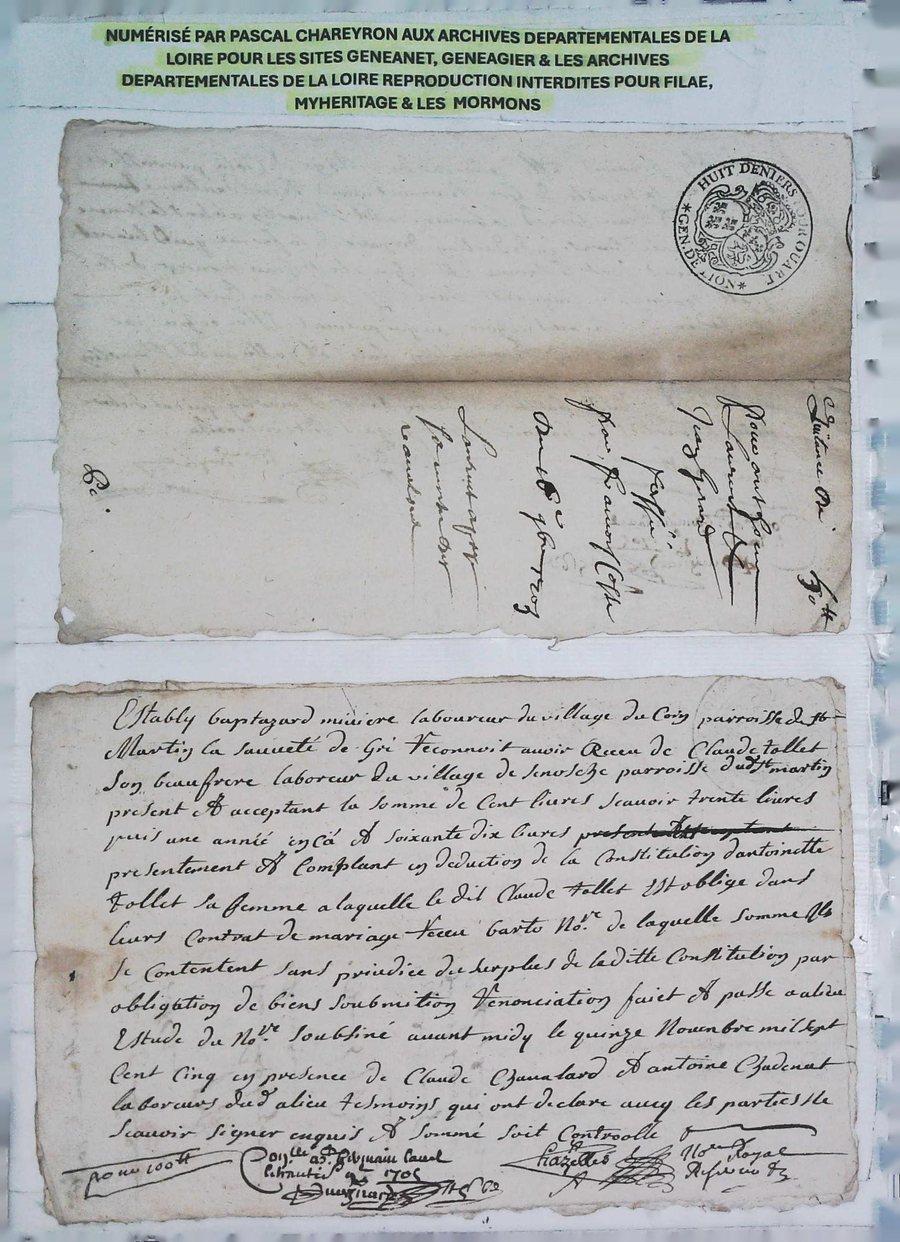 NUMÉRISÉ PAR PASCAL CHAREYRON AUX ARCHIVES DEPARTEMENTALES DE LA
LOIRE POUR LES SITES GENEANET, GENEAGIER & LES ARCHIVES
DEPARTEMENTALES DE LA LOIRE REPRODUCTION INTERDITES POUR FILAE,
MYHERITAGE & LES MORMONS
HUIT DENIERS
GEN. DE
Quittance de
pour
Laurent
par francois
Du 16e 9bre 1705
Estably baptazard miviere laboureur du village du Coin parroisse de st
Martin la sauveté de Gré Reconnoit auoir Receu de Claude tollet
son beaufrere laboreur du village de senosche parroisse dud st martin
present & acceptant la somme de Cent liures scauoir trente liures
puis une année ença & soixante dix liures
presentement & Complant en deduction de la Constitution dantoinette
tollet sa femme a laquelle le dit Claude tollet Est oblige dans
leurs Contrat de mariage Receu barto Nore de laquelle somme Ils
se Contentent sans priudice du surplus de laditte Constitution par
obligation de biens soubmition Renonciation faict & passe a alieu
Estude du Nore soubsiné auant midy le quinze Nouenbre mil sept
Cent Cinq en presence de Claude Chaualard & antoine Chadenat
laboreurs dud alieu tesmoins qui ont declare aueq les parties ne
scauoir signer enquis & sommé soit Controolle
pour 100tt
1705
Chazelles Nore Royal